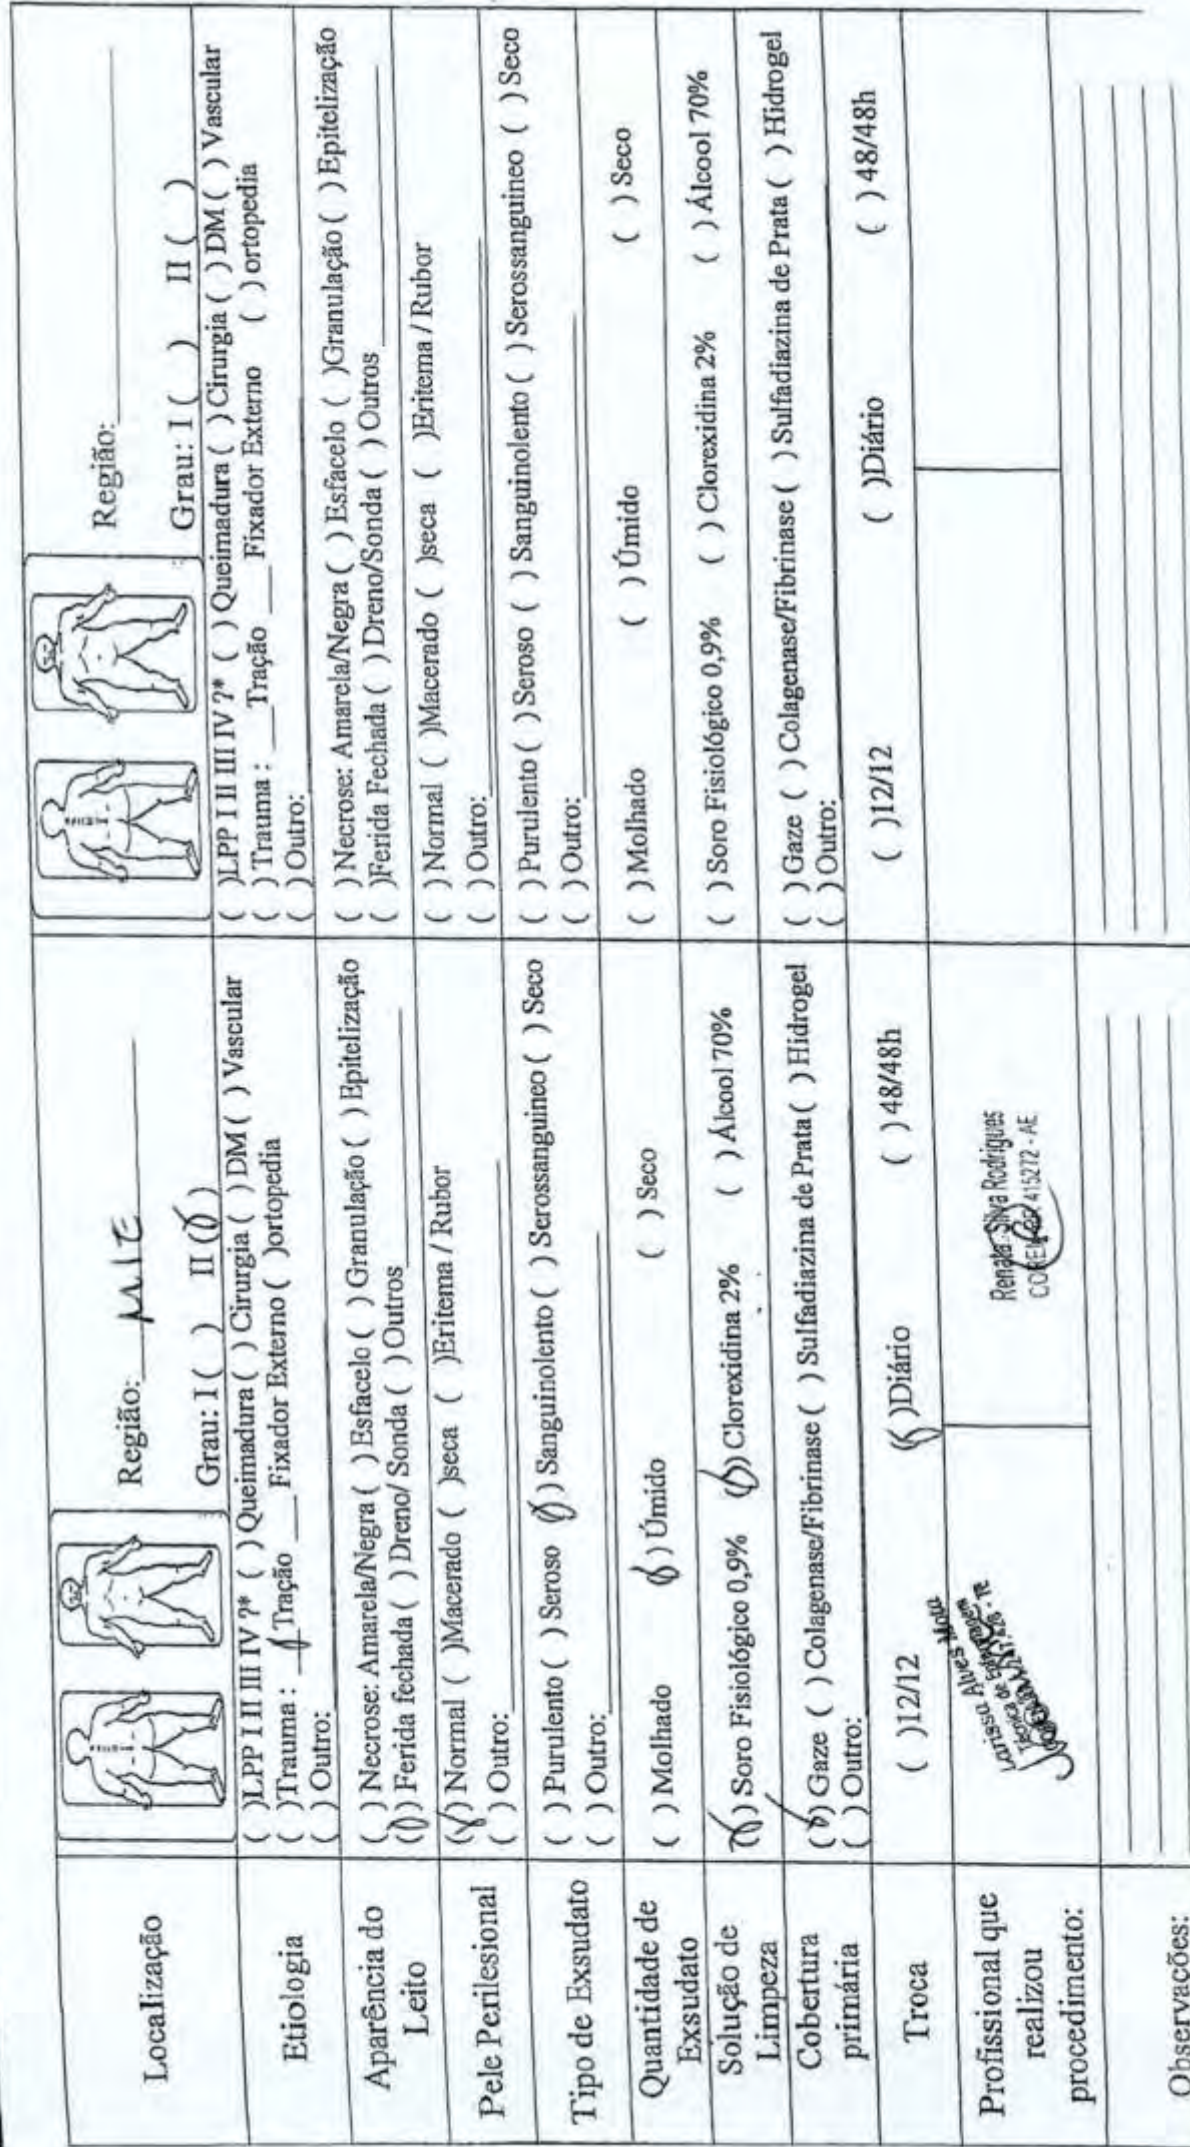 Localização
Região: MIE
Grau: I ( ) II (X)
Região:
Grau: I ( ) II ( )
Etiologia
( )LPP I II III IV ?* ( ) Queimadura ( ) Cirurgia ( ) DM ( ) Vascular
( )Trauma : Tração ___ Fixador Externo ( )ortopedia
( ) Outro:
( )LPP I II III IV ?* ( ) Queimadura ( ) Cirurgia ( ) DM ( ) Vascular
( ) Trauma : ___Tração ___Fixador Externo ( ) ortopedia
( ) Outro:
Aparência do
Leito
( ) Necrose: Amarela/Negra ( ) Esfacelo ( ) Granulação ( ) Epitelização
(X) Ferida fechada ( ) Dreno/ Sonda ( ) Outros
( ) Necrose: Amarela/Negra ( ) Esfacelo ( )Granulação ( ) Epitelização
( )Ferida Fechada ( ) Dreno/Sonda ( ) Outros
Pele Perilesional
(X) Normal ( )Macerado ( )seca ( )Eritema / Rubor
( ) Outro:
( ) Normal ( )Macerado ( )seca ( )Eritema / Rubor
( ) Outro:
Tipo de Exsudato
( ) Purulento ( ) Seroso (X) Sanguinolento ( ) Serossanguineo ( ) Seco
( ) Outro:
( ) Purulento ( ) Seroso ( ) Sanguinolento ( ) Serossanguineo ( ) Seco
( ) Outro:
Quantidade de
Exsudato
( ) Molhado (X) Úmido ( ) Seco
( ) Molhado ( ) Úmido ( ) Seco
Solução de
Limpeza
(X) Soro Fisiológico 0,9% (X) Clorexidina 2% ( ) Álcool 70%
( ) Soro Fisiológico 0,9% ( ) Clorexidina 2% ( ) Álcool 70%
Cobertura
primária
(X) Gaze ( ) Colagenase/Fibrinase ( ) Sulfadiazina de Prata ( ) Hidrogel
( ) Outro:
( ) Gaze ( ) Colagenase/Fibrinase ( ) Sulfadiazina de Prata ( ) Hidrogel
( ) Outro:
Troca
( )12/12 (X)Diário ( ) 48/48h
( )12/12 ( )Diário ( ) 48/48h
Profissional que
realizou
procedimento:
Larissa Alves Mota
Técnica de Enfermagem
Renata Silva Rodrigues
415272 - AE
Observações: